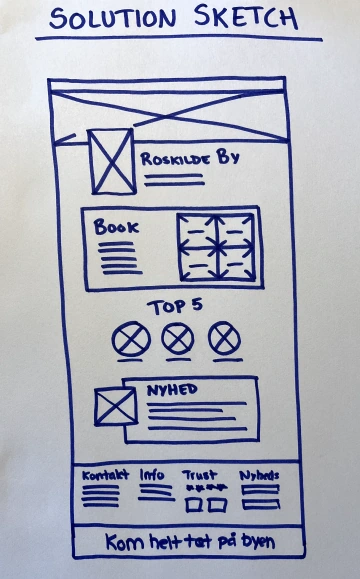 SOLUTION SKETCH
ROSKILDE BY
BOOK
TOP 5
NYHED
Kontakt Info Trust Nyheds
Kom helt tæt på byen